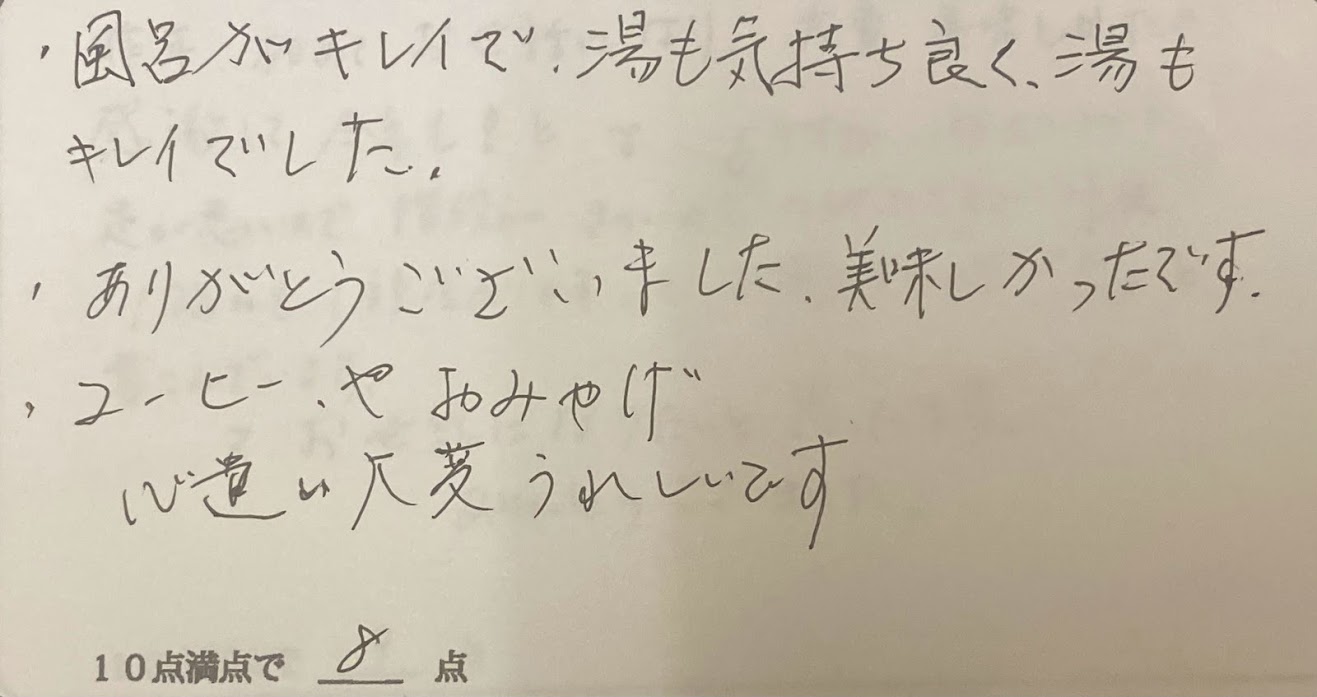 ・風呂がキレイで、湯も気持ち良く、湯も
キレイでした。
・ありがとうございました、美味しかったです。
・コーヒー、や おみやげ
心遣い大変うれしいです
10点満点で 8 点